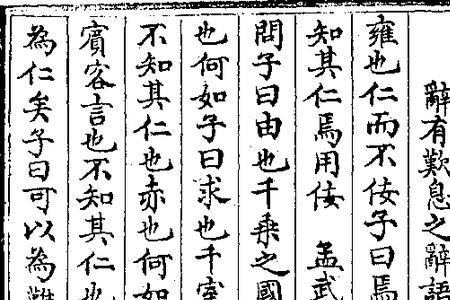 辭有歎息之辭語
雍也仁而不佞子曰焉
知其仁焉用佞　孟武
問子曰由也千乗之國
也何如子曰求也千室
不知其仁也赤也何如
賓客言也不知其仁也
為仁矣子曰可以為難